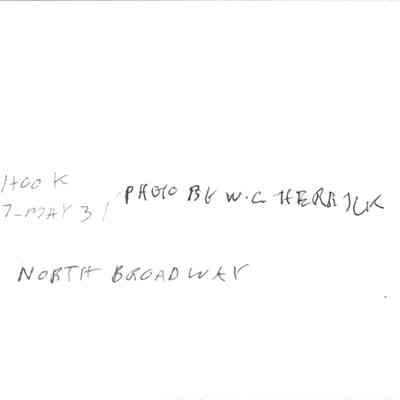 HOOK
7-MAY 31 PHOTO BY W.C HERRICK
NORTH BROADWAY